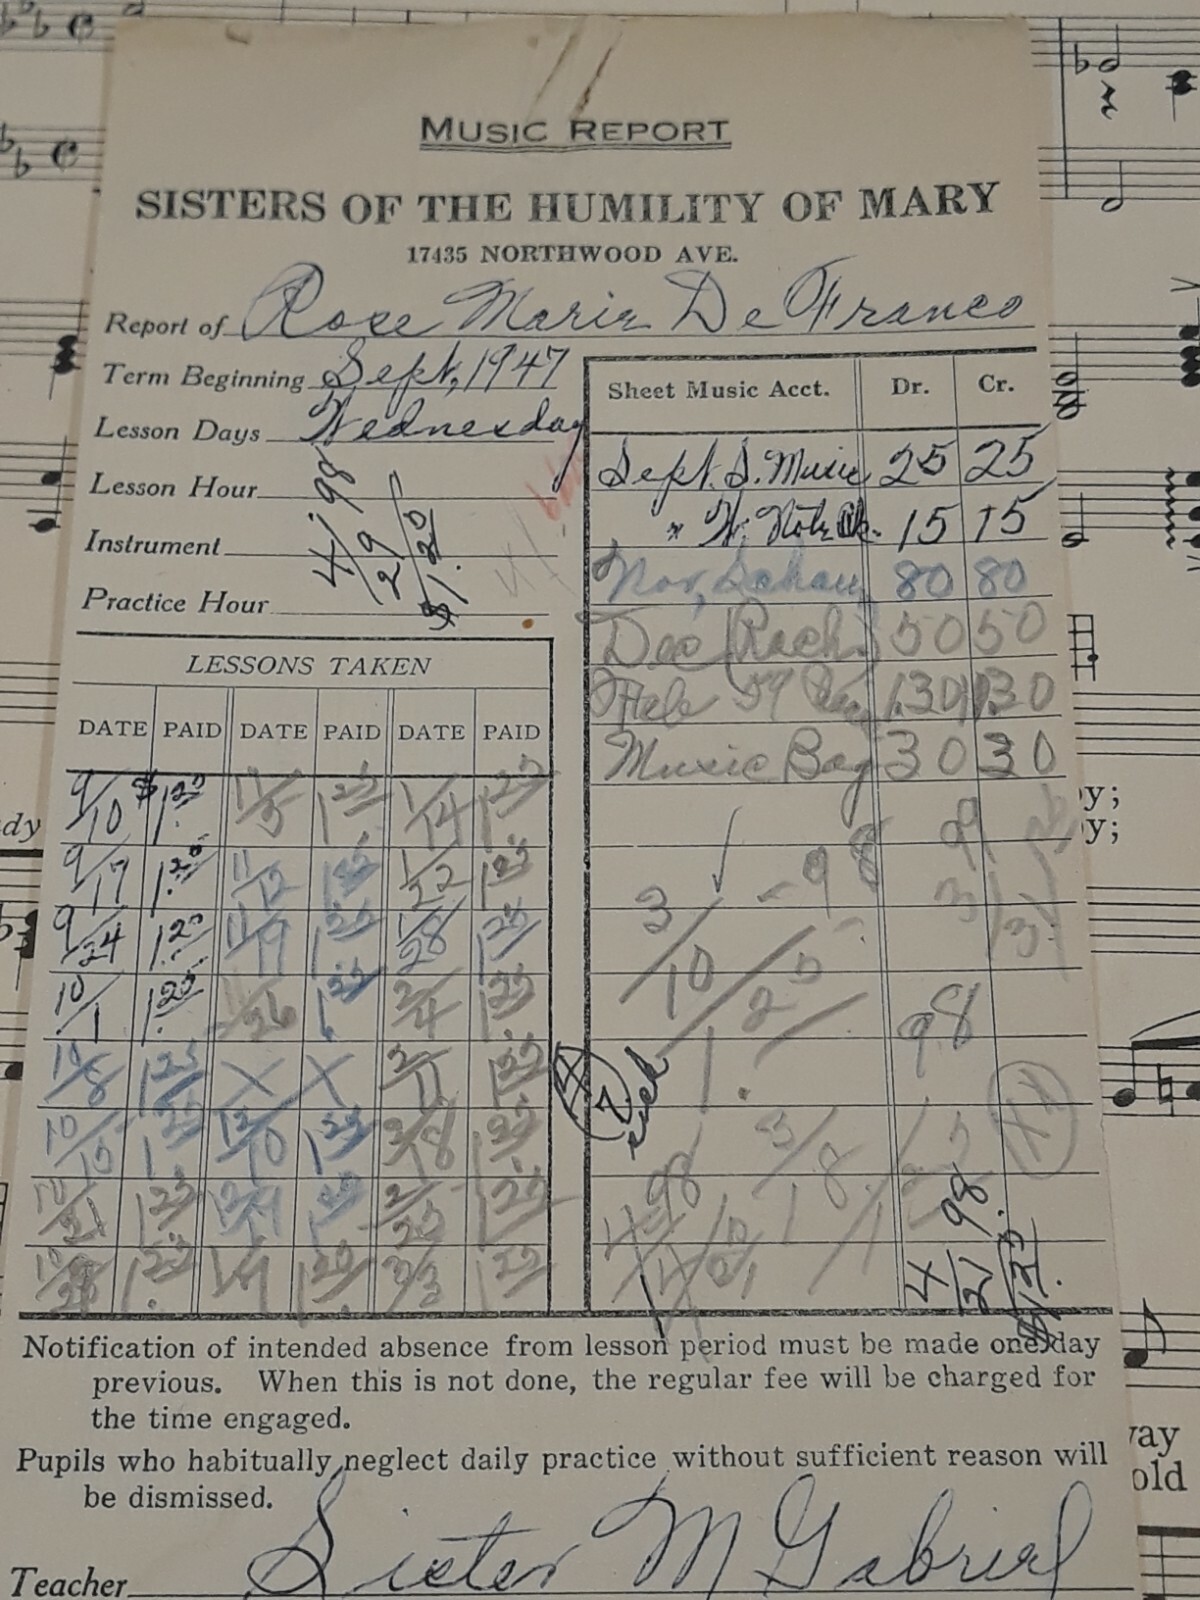 MUSIC REPORT
SISTERS OF THE HUMILITY OF MARY
17435 NORTHWOOD AVE.
Report of Rose Marie De Franco
Term Beginning Sept, 1947
Lesson Days Wednesday
Lesson Hour
Instrument
Practice Hour
4/29 $1.20
Sheet Music Acct. Dr. Cr.
Sept. S. Music 25 25
" 15 15
Nov, 80 80
Dec 50 50
1.30 1.30
Music Bag 30 30
LESSONS TAKEN
DATE PAID DATE PAID DATE PAID
9/10 $1.25 11/5 1.25 1/14 1.25
9/17 1.25 11/12 1.25 1/22 1.25
9/24 1.25 11/19 1.25 1/28 1.25
10/1 1.25 11/26 1.25 2/4 1.25
10/8 1.25 X X 2/11 1.25
10/15 1.25 12/10 1.25 2/18 1.25
10/21 1.25 1.25 2/25 1.25
1.25 1.25 3/3 1.25
3/10 1.25
98
4/21
Notification of intended absence from lesson period must be made one day
previous. When this is not done, the regular fee will be charged for
the time engaged.
Pupils who habitually neglect daily practice without sufficient reason will
be dismissed.
Teacher Sister M Gabriel
way
old